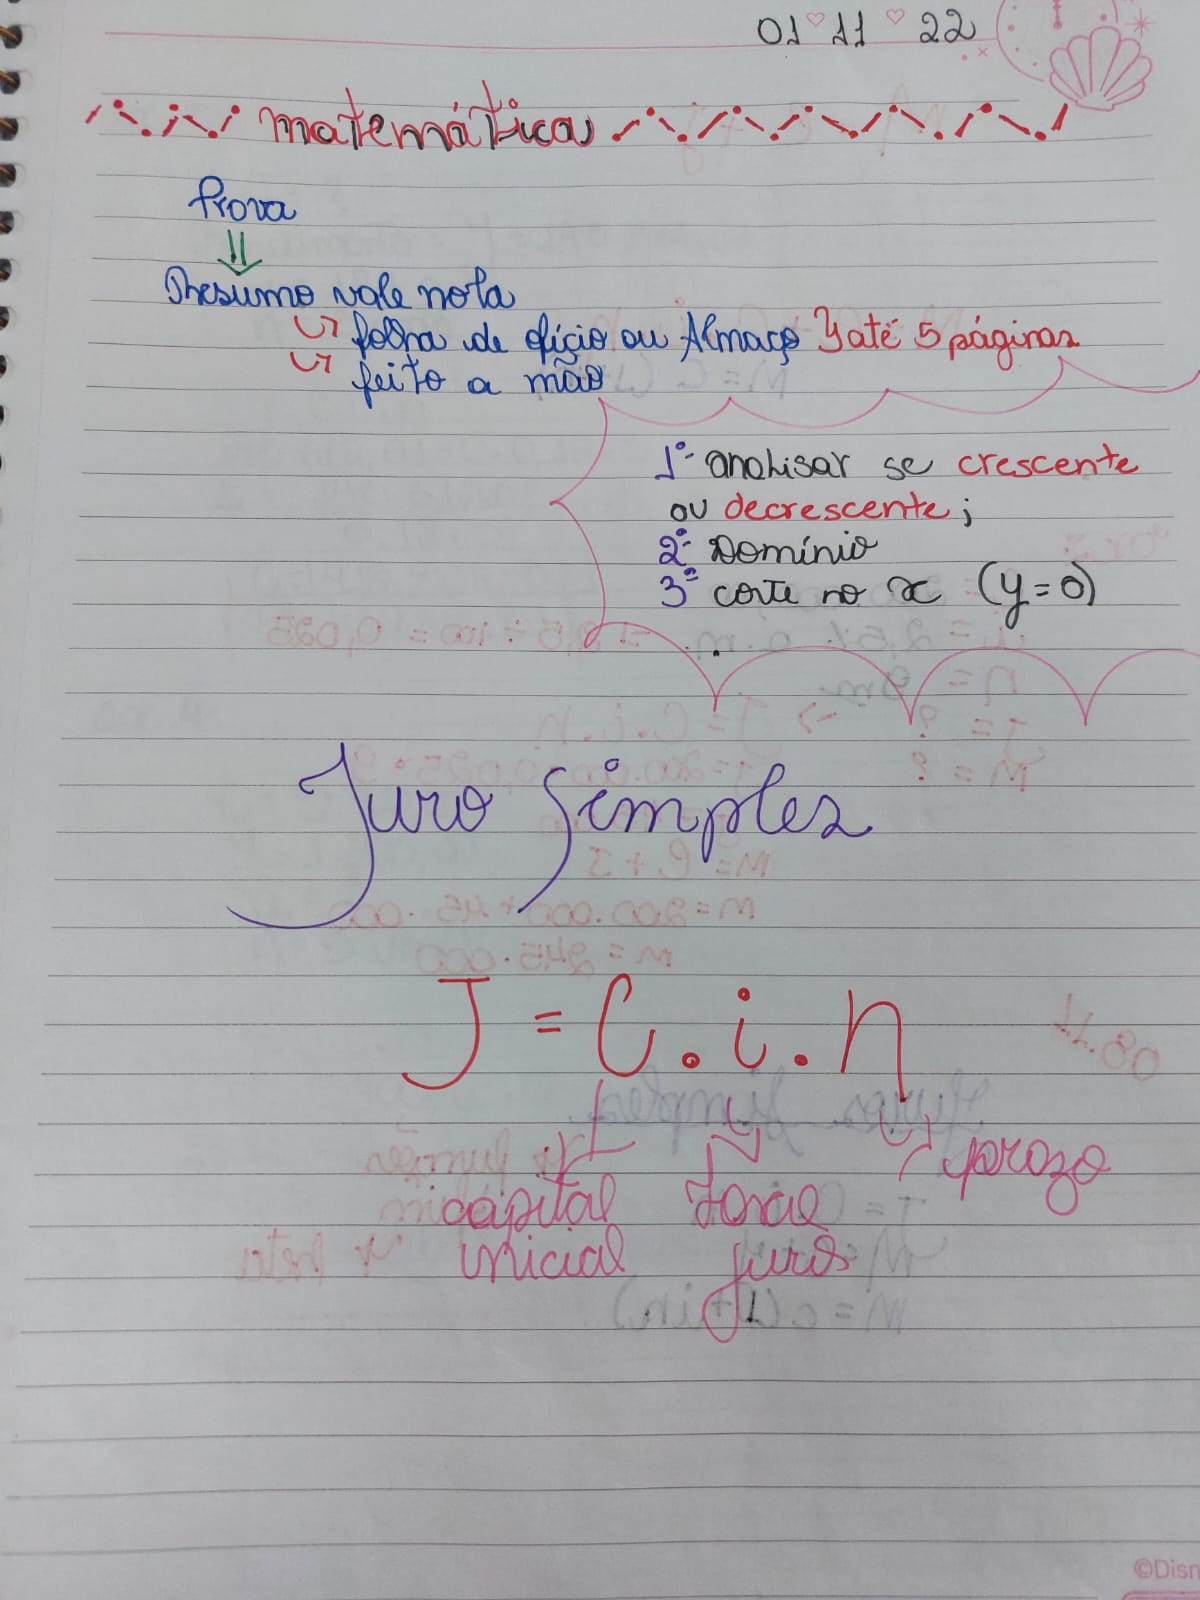 01 ♡ 11 ♡ 22
matemática
Prova
Resumo vale nota
folha de ofício ou Almaço } até 5 páginas
feito a mão
1º- analisar se crescente
ou decrescente;
2º- Domínio
3º- corte no x (y=0)
Juro Simples
J = C . i . n
capital inicial
taxa juros
prazo
©Disn